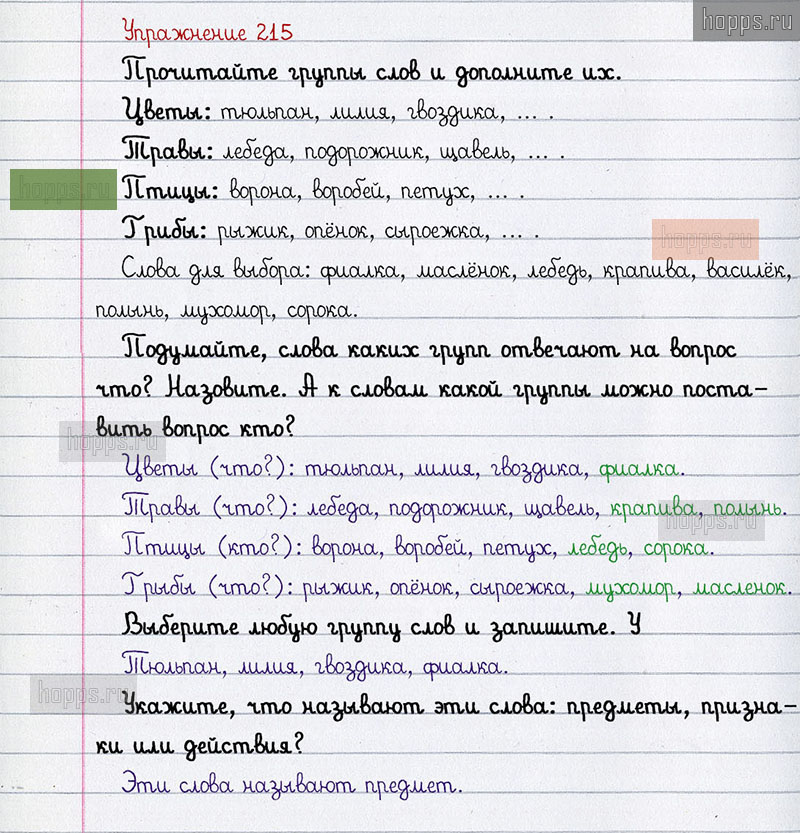 hopps.ru
Упражнение 215
Прочитайте группы слов и дополните их.
Цветы: тюльпан, лилия, гвоздика, ... .
Травы: лебеда, подорожник, щавель, ... .
hopps.ru
Птицы: ворона, воробей, петух, ... .
Грибы: рыжик, опёнок, сыроежка, ... .
hopps.ru
Слова для выбора: фиалка, маслёнок, лебедь, крапива, василёк,
полынь, мухомор, сорока.
Подумайте, слова каких групп отвечают на вопрос
что? Назовите. А к словам какой группы можно поста-
вить вопрос кто?
hopps.ru
Цветы (что?): тюльпан, лилия, гвоздика, фиалка.
Травы (что?): лебеда, подорожник, щавель, крапива, полынь.
hopps.ru
Птицы (кто?): ворона, воробей, петух, лебедь, сорока.
Грыбы (что?): рыжик, опёнок, сыроежка, мухомор, масленок.
Выберите любую группу слов и запишите. У
Тюльпан, лилия, гвоздика, фиалка.
hopps.ru
Укажите, что называют эти слова: предметы, призна-
ки или действия?
Эти слова называют предмет.